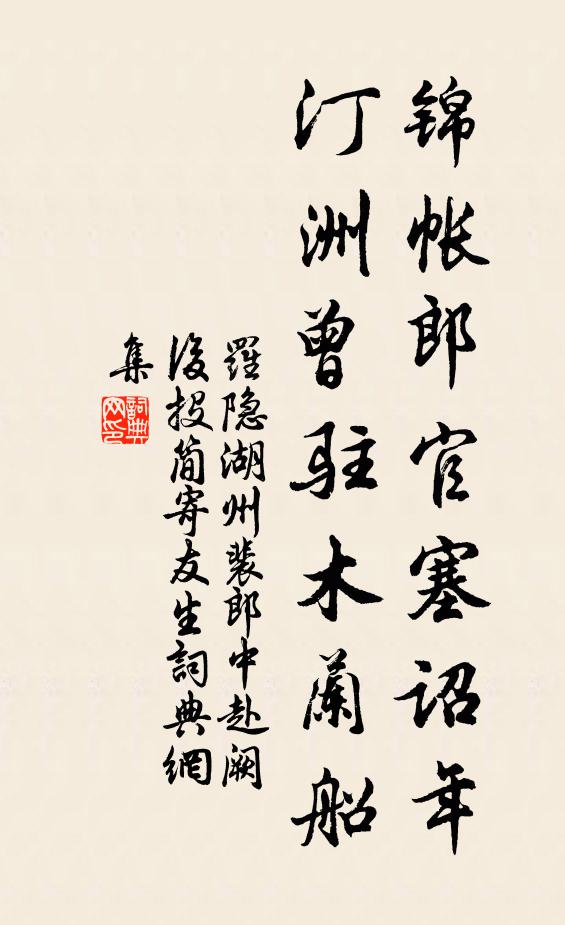 锦帐郎官塞诏年
汀洲曾驻木蘭船
羅隐湖州裴郎中赴阙
後投简寄友生詞典網
集
詞典网印